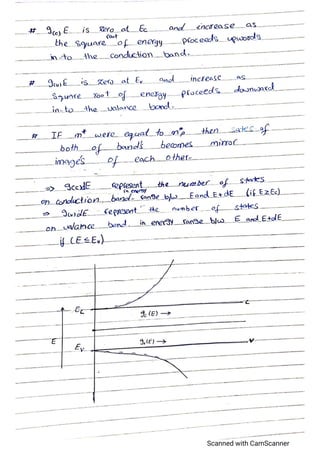 # g(c)E is zero at Ec and increase as
the square root of energy proceeds upwords
in to the conduction band.
# g(v)E is zero at Ev and increase as
Square root of energy proceeds downward
in-to the valance band.
# IF m* were equal to m*p then sates of
both of bands becomes mirror
images of each other.
⇒ gc(E)dE represent the number of states
on conduction band in energy range b/w E and E+dE (if E≥Ec)
⇒ g(v)dE represent the number of states
on valance band in energy range b/w E and E+dE
if (E≤Ev)
Ec
c
gc(E) →
E
gv(E) →
Ev
v
Scanned with CamScanner